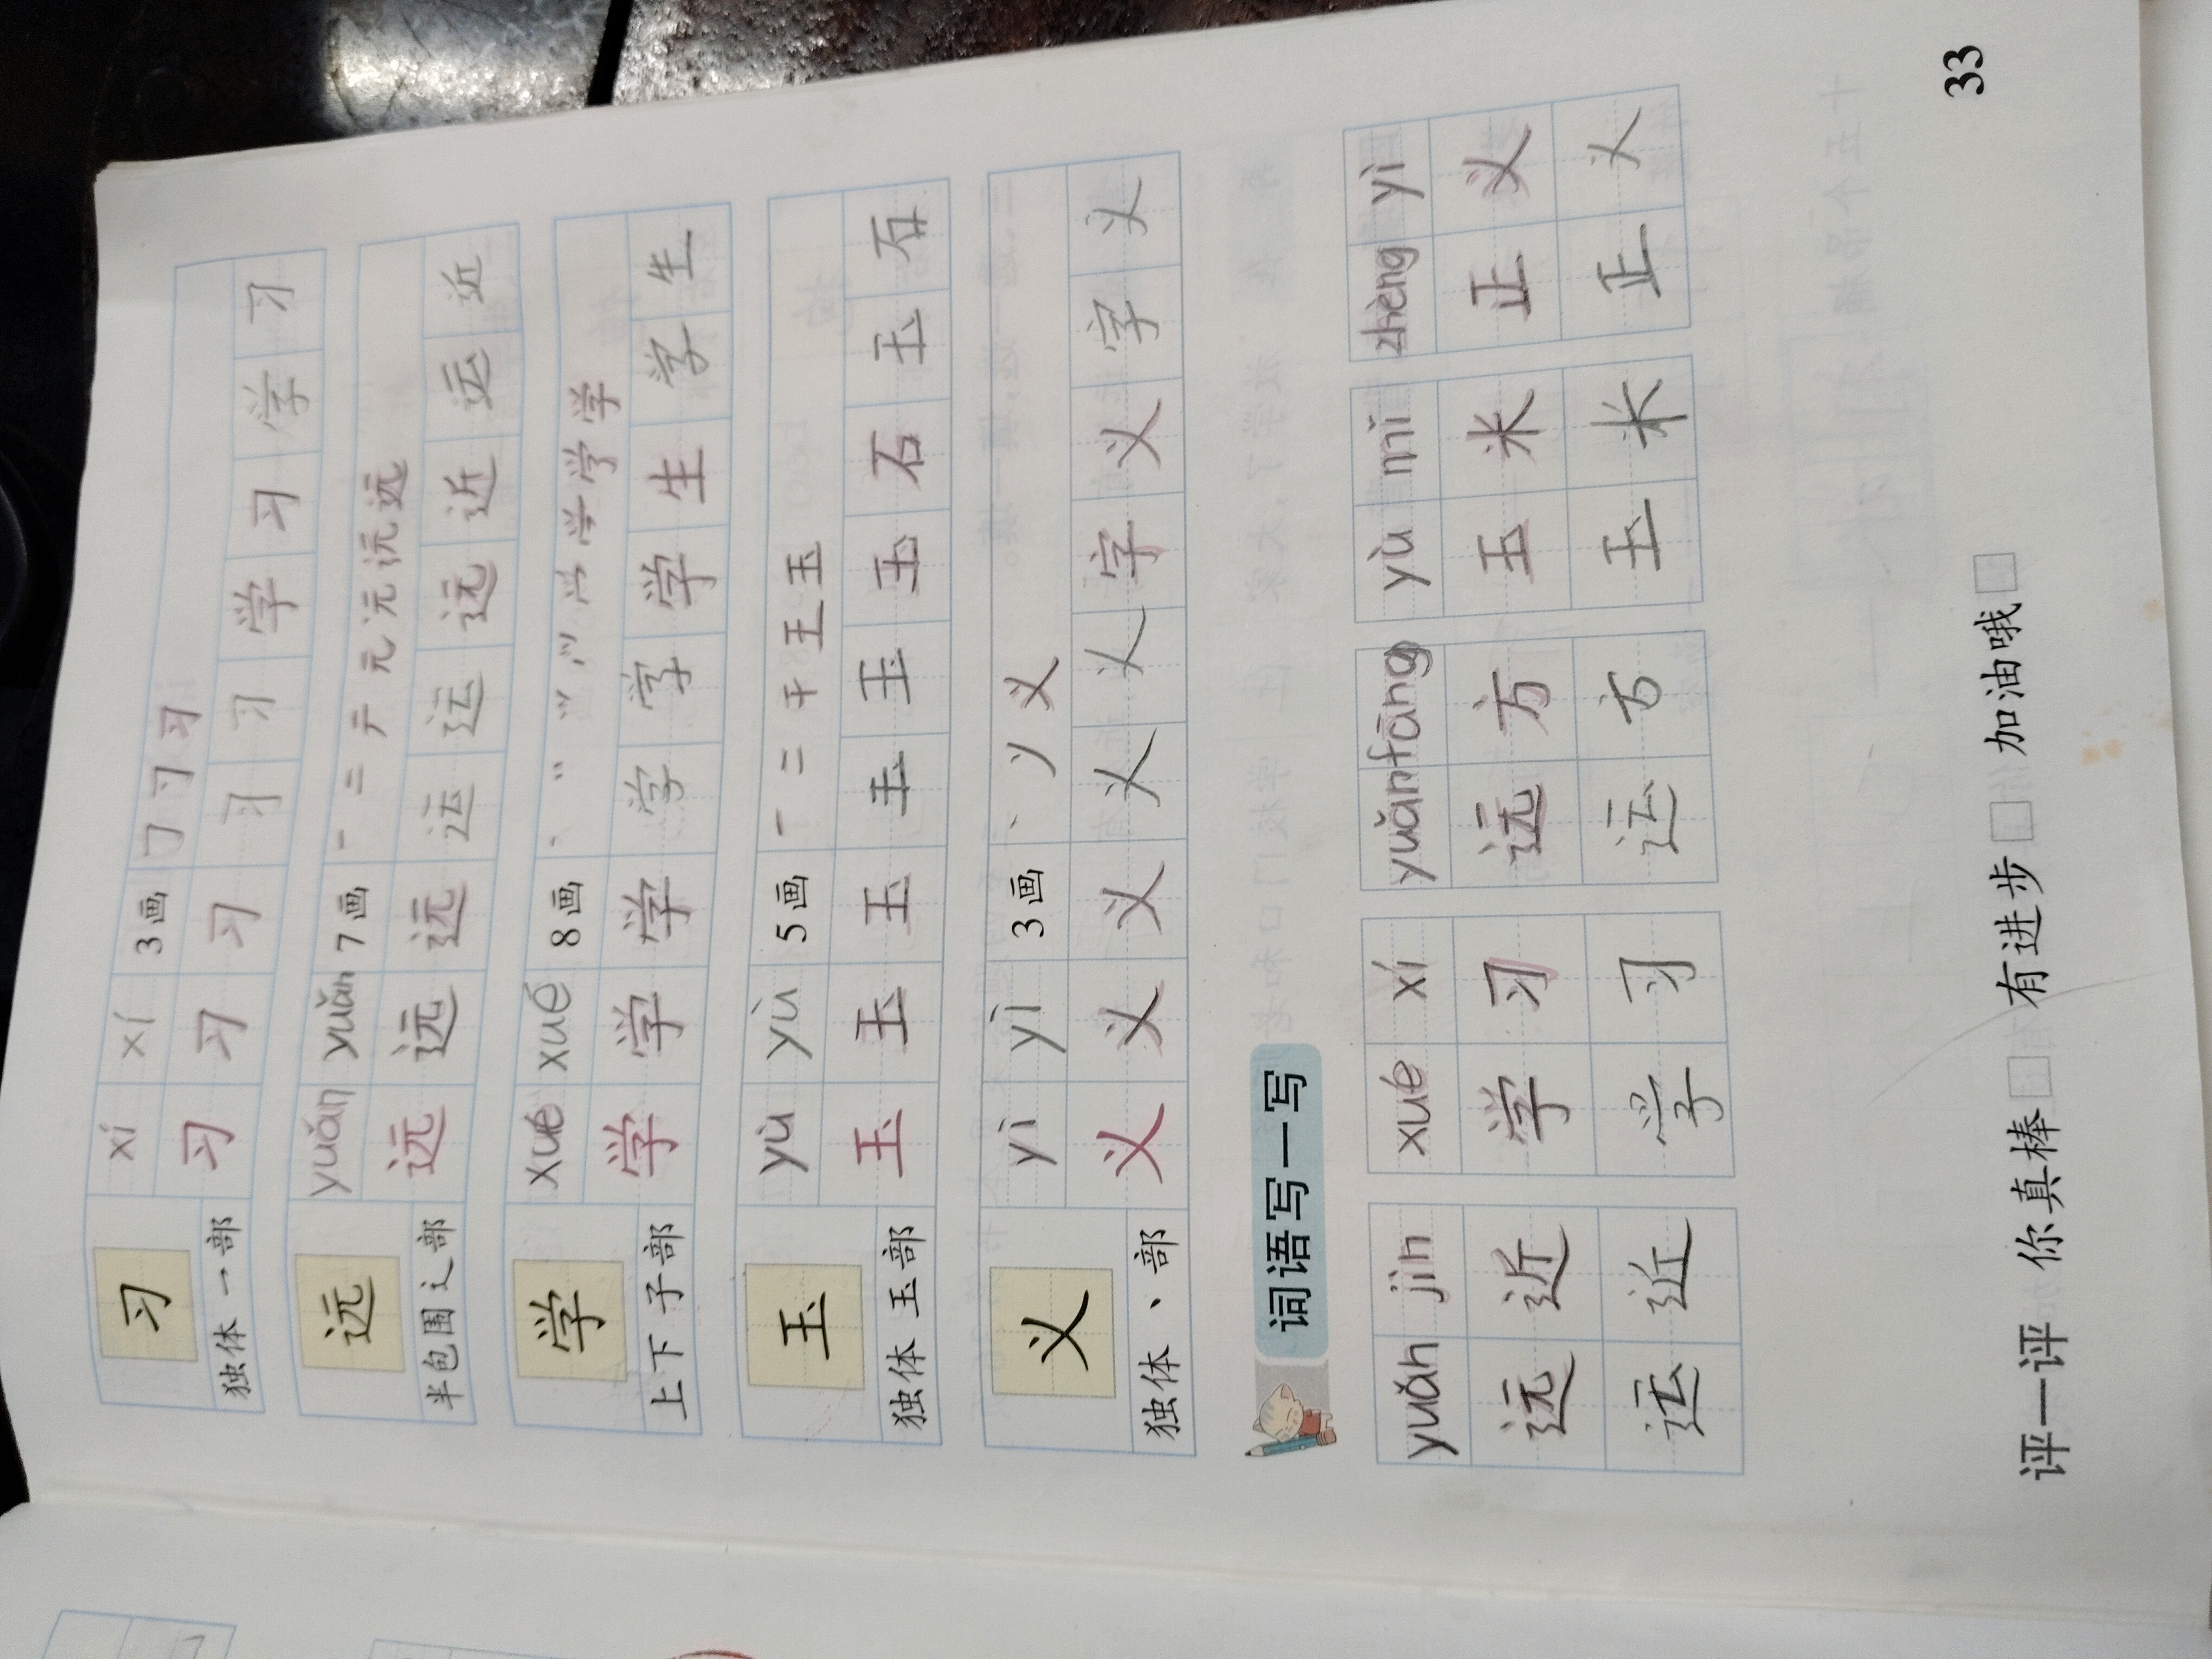 习 xí xí 3画 ㇆ 习 习
独体 ㇀部 习 习 习 习 习 学 习 学 习
远 yuǎn yuǎn 7画 一 二 テ 元 元 沅 远 远
半包围 辶部 远 远 远 运 运 远 近 运 近
学 xué xué 8画 学 学 学
上下 子部 学 学 学 学 学 学 生 学 生
玉 yù yù 5画 一 二 干 王 玉
独体 玉部 玉 玉 玉 玉 玉 玉 石 玉 石
义 yì yì 3画 丶 丷 义
独体 丶部 义 义 义 义 义 字 义 字 义
词语写一写
yuǎn jìn xué xí yuǎn fāng yù mǐ zhèng yì
远近 学习 远方 玉米 正义
运近 学习 运方 玉米 正义
评一评 你真棒□ 有进步□ 加油哦□
33